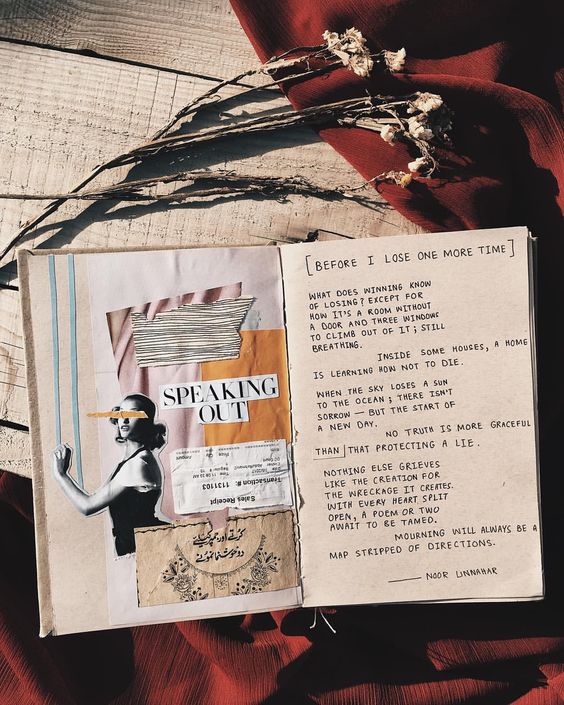 SPEAKING
OUT
Sales Receipt
Transaction #: 1131103
کرتے اور جمپر کیلئے
دو خوشنما نمونے
[BEFORE I LOSE ONE MORE TIME]
WHAT DOES WINNING KNOW
OF LOSING? EXCEPT FOR
HOW IT'S A ROOM WITHOUT
A DOOR AND THREE WINDOWS
TO CLIMB OUT OF IT; STILL
BREATHING.
INSIDE SOME HOUSES, A HOME
IS LEARNING HOW NOT TO DIE.
WHEN THE SKY LOSES A SUN
TO THE OCEAN; THERE ISN'T
SORROW — BUT THE START OF
A NEW DAY.
NO TRUTH IS MORE GRACEFUL
THAN THAT PROTECTING A LIE.
NOTHING ELSE GRIEVES
LIKE THE CREATION FOR
THE WRECKAGE IT CREATES.
WITH EVERY HEART SPLIT
OPEN, A POEM OR TWO
AWAIT TO BE TAMED.
MOURNING WILL ALWAYS BE A
MAP STRIPPED OF DIRECTIONS.
— NOOR UNNAHAR